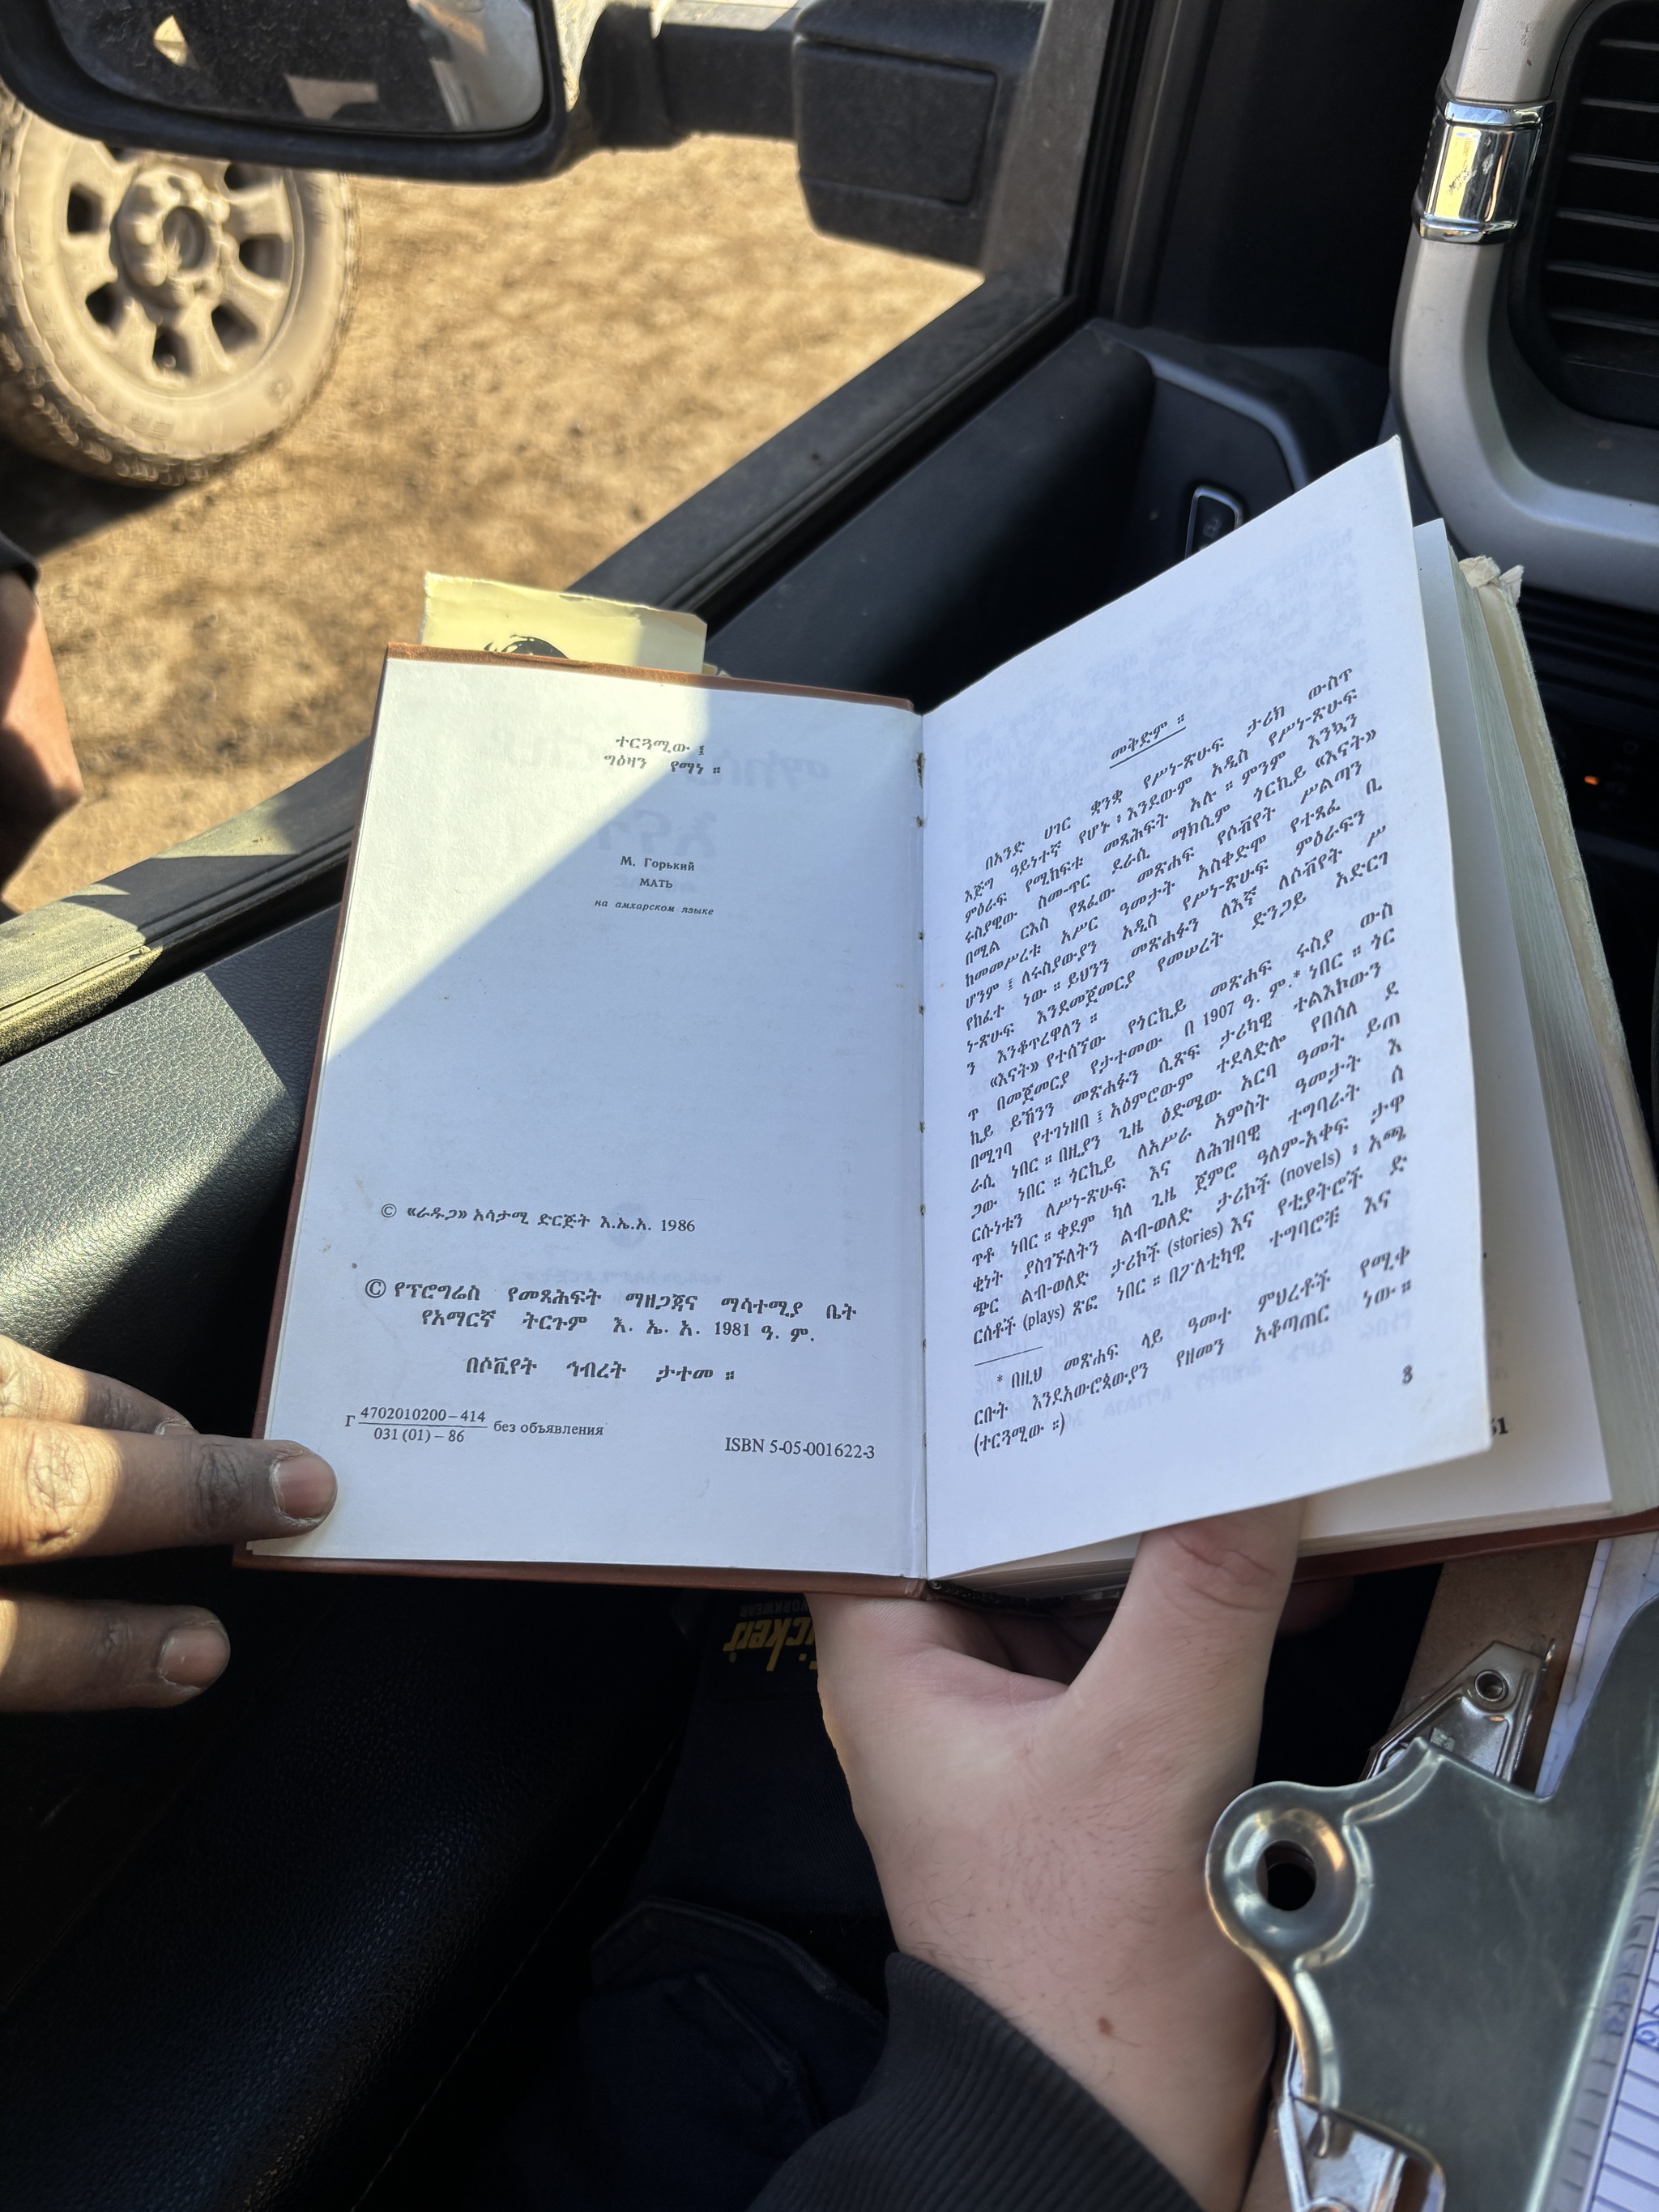 ተርጓሚው ፤
ግዕዛን የማነ ።
М. Горький
МАТЬ
на амхарском языке
© «ራዱጋ» አሳታሚ ድርጅት እ.ኤ.አ. 1986
© የፕሮግሬስ የመጻሕፍት ማዘጋጃና ማሳተሚያ ቤት
የአማርኛ ትርጉም እ. ኤ. አ. 1981 ዓ. ም.
በሶቪየት ኅብረት ታተመ ።
Г 4702010200–414
031 (01) – 86
без объявления
ISBN 5-05-001622-3
መቅድም ።
በአንድ ሀገር ቋንቋ የሥነ-ጽሁፍ ታሪክ ውስጥ
እጅግ ዓይነተኛ የሆኑ ፣ እንደውም አዲስ የሥነ-ጽሁፍ
ምዕራፍ የሚከፍቱ መጻሕፍት አሉ ። ምንም እንኳን
ሩስያዊው ስመ-ጥር ደራሲ ማክሲም ጎርኪይ «እናት»
በሚል ርእስ የጻፈው መጽሐፍ የሶቭየት ሥልጣን
ከመመሥረቱ አሥር ዓመታት አስቀድሞ የተጻፈ ቢ
ሆንም ፤ ለሩስያውያን አዲስ የሥነ-ጽሁፍ ምዕራፍን
የከፈተ ነው ። ይህንን መጽሐፉን ለእኛ ለሶቭየት ሥ
ነ-ጽሁፍ እንደመጀመርያ የመሠረት ድንጋይ አድርገ
ን እንቆጥረዋለን ።
«እናት» የተሰኘው የጎርኪይ መጽሐፍ ሩስያ ውስ
ጥ በመጀመርያ የታተመው በ 1907 ዓ. ም.* ነበር ። ጎር
ኪይ ይኸንን መጽሐፉን ሲጽፍ ታሪካዊ ተልእኮውን
በሚገባ የተገነዘበ ፤ አዕምሮውም ተደላድሎ የበሰለ ደ
ራሲ ነበር ። በዚያን ጊዜ ዕድሜው አርባ ዓመት ይጠ
ጋው ነበር ። ጎርኪይ ለአሥራ አምስት ዓመታት እ
ርሱነቱን ለሥነ-ጽሁፍ እና ለሕዝባዊ ተግባራት ሰ
ጥቶ ነበር ። ቀደም ካለ ጊዜ ጀምሮ ዓለም-አቀፍ ታዋ
ቂነት ያስገኙለትን ልብ-ወለድ ታሪኮች (novels) ፣ አጫ
ጭር ልብ-ወለድ ታሪኮች (stories) እና የቲያትሮች ድ
ርሰቶች (plays) ጽፎ ነበር ። በፖለቲካዊ ተግባሮቹ እና
* በዚህ መጽሐፍ ላይ ዓመተ ምህረቶች የሚቀ
ርቡት እንደአውሮጳውያን የዘመን አቆጣጠር ነው ።
(ተርጓሚው ።)
3
51